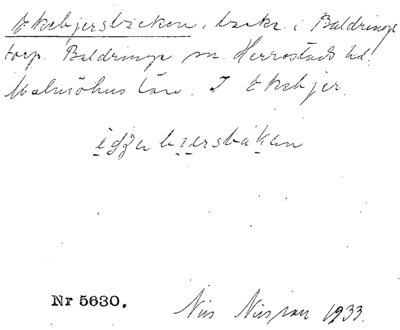 Ekebjersbacken, backe i Baldringe
torp. Baldringe sn. Herrestads hd.
Malmöhus län. I Ekebjer.
Nr 5630. Nils Nilsson 1933.